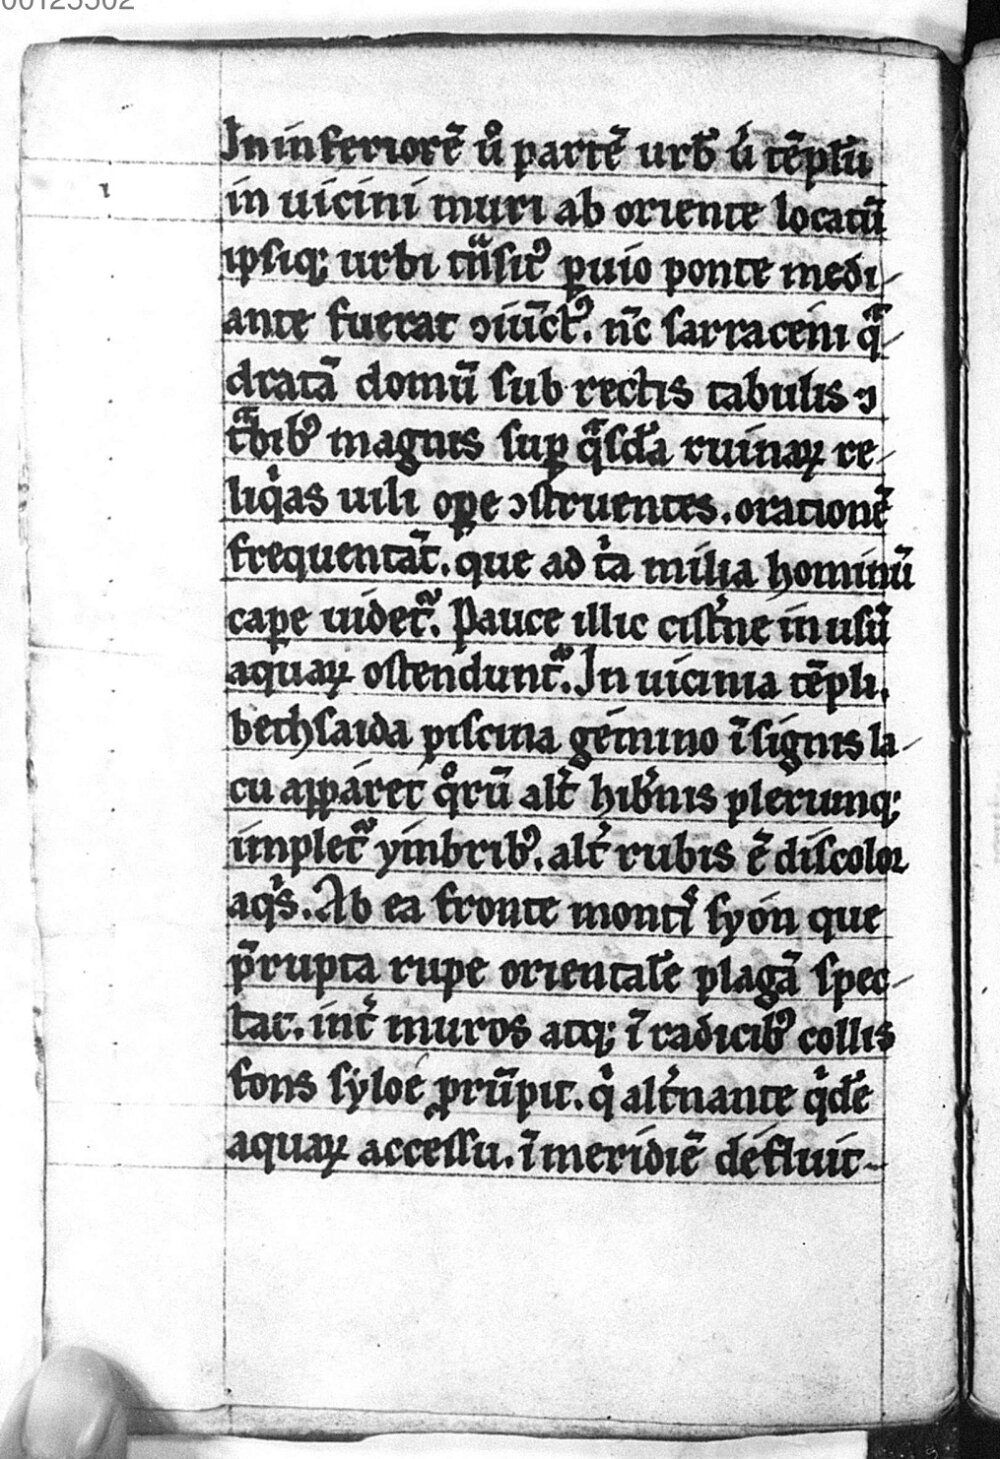 00125502
In inferiorẽ ũ partẽ urƀ ú tẽplũ
in uicini muri ab oriente locatũ
ipsiq; urbi tͣnsitꝰ ꝑuio ponte medi
ante fuerat ɔiũctꝰ. nc̃ sarraceni qͣ
dratã domũ sub rectis tabulis ɔ
tͣbibꝰ magnis suꝑ qͣsdã ruinaꝝ re
liqͥas uili oꝑe ɔstruentes. orationẽ
frequentãt. que ad tͥa milia hominũ
caꝑe uidet᷑. Pauce illic cist̾ne in usũ
aquaꝝ ostendunt᷑. In uicinia tẽpli.
bethsaida piscina gemino ĩsignis la
cu apparet qͦrũ alt̾ hib̾nis plerumq;
implet᷑ ymbribꝰ. alt̾ rubis ẽ discolor
aqͥs. Ab ea fronte montꝭ syon que
p̃rupta rupe orientalẽ plagã spec
tat. int̾ muros atq; ĩ radicibꝰ collis
fons syloe ꝓrũpit. qͥ alt̾nante qͥdẽ
aquaꝝ accessu. ĩ meridiẽ defluit